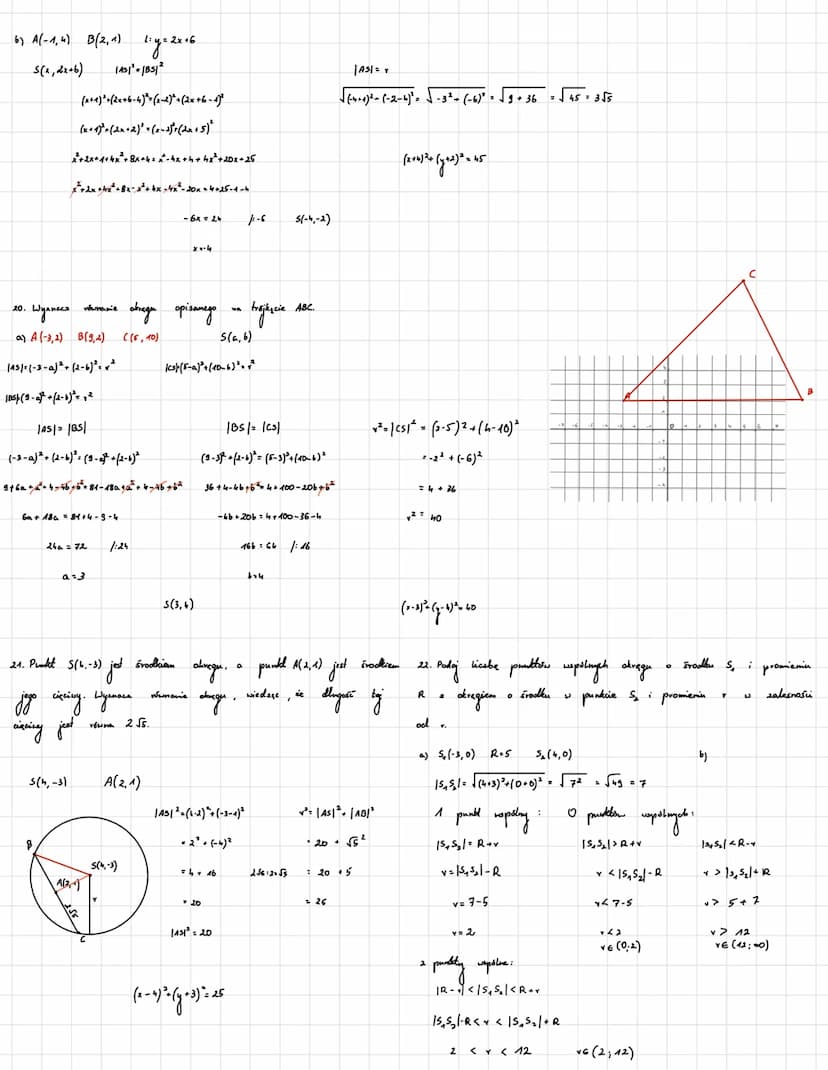 b) A(-1,4) B(2,1) l: y = 2x+6
S(x, 2x+6) |AS|² = |BS|²
|AS| = r
(x+1)²+(2x+6-4)² = (x-2)²+(2x+6-1)²
√(-4+1)²+(-2-4)² = √-3²+(-6)² = √9+36 = √45 = 3√5
(x+1)²+(2x+2)² = (x-2)²+(2x+5)²
x²+2x+1+4x²+8x+4 = x²-4x+4+4x²+20x+25
(x+4)²+(y+2)² = 45
x²+2x+4x²+8x-x²+4x-4x²-20x = 4+25-1-4
-6x = 24 /:-6 S(-4,-2)
x=-4
20. Wyznacz równanie okręgu opisanego na trójkącie ABC.
a) A(-3,2) B(9,2) C(5,10) S(a,b)
|AS|=(-3-a)²+(2-b)²=r² |CS|=(5-a)²+(10-b)²=r²
|BS|=(9-a)²+(2-b)²=r²
|AS| = |BS| |BS| = |CS| r² = |CS|² = (3-5)²+(4-10)²
(-3-a)²+(2-b)² = (9-a)²+(2-b)² (9-3)²+(2-b)² = (5-3)²+(10-b)² = -2²+(-6)²
9+6a+a²+4-4b+b² = 81-18a+a²+4-4b+b² 36+4-4b+b² = 4+100-20b+b² = 4+36
6a+18a = 81+4-9-4 -4b+20b = 4+100-36-4 r² = 40
24a = 72 /:24 16b = 64 /:16
a=3 b=4
S(3,4) (x-3)²+(y-4)²=40
C
A
B
0
21. Punkt S(4,-3) jest środkiem okręgu, a punkt A(2,1) jest środkiem
jego cięciwy. Wyznacz równanie okręgu, wiedząc, że długość tej
cięciwy jest równa 2√5.
S(4,-3) A(2,1)
|AS|²=(4-2)²+(-3-1)² r²=|AS|²+|AB|²
= 2²+(-4)² = 20 + √5²
= 4+16 2√5:2=√5 = 20+5
= 20 = 25
|AS|² = 20
B
S(4,-3)
A(2,1)
r
2√5
C
(x-4)²+(y+3)²=25
22. Podaj liczbę punktów wspólnych okręgu o środku S₁ i promieniu
R z okręgiem o środku w punkcie S₂ i promieniu r w zależności
od r.
a) S₁(-3,0) R=5 S₂(4,0) b)
|S₁S₂|=√(4+3)²+(0+0)² = √7² = √49 = 7
1 punkt wspólny: 0 punktów wspólnych:
|S₁S₂| = R+r |S₁S₂|>R+r |S₁S₂|<R-r
r=|S₁S₂|-R r<|S₁S₂|-R r>|S₁S₂|+R
r=7-5 r<7-5 r>5+7
r=2 r<2 r>12
r∈(0;2) r∈(12;∞)
2 punkty wspólne:
|R-r|<|S₁S₂|<R+r
|S₁S₂|-R<r<|S₁S₂|+R
2 < r < 12 r∈(2;12)